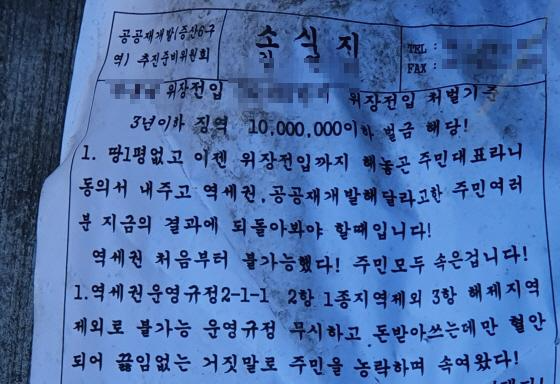 공공재개발(증산6구
역) 추진준비위원회
소식지
TEL :
FAX :
위장전입 위장전입 처벌기준
3년이하 징역 10,000,000이하 벌금 해당!
1. 땅1평없고 이젠 위장전입까지 해놓곤 주민대표라니
동의서 내주고 역세권.공공재개발해달라고한 주민여러
분 지금의 결과에 되돌아봐야 할때입니다!
역세권 처음부터 불가능했다! 주민모두 속은겁니다!
1.역세권운영규정2-1-1 2항 1종지역제외 3항 해제지역
제외로 불가능 운영규정 무시하고 돈받아쓰는데만 혈안
되어 끊임없는 거짓말로 주민을 농락하며 속여왔다!